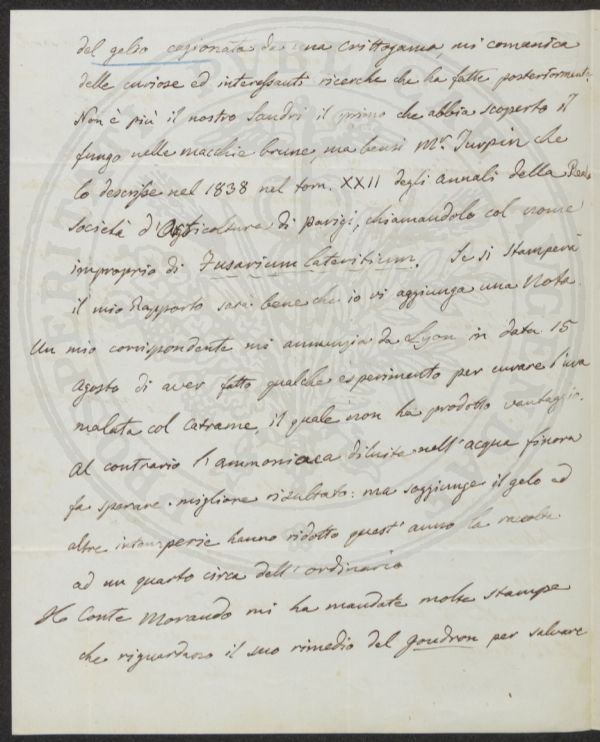 del gelso cagionata da una crittogama, mi comunica
delle curiose ed interessanti ricerche che ha fatte posteriorment:
Non è più il nostro Sandri il primo che abbia scoperto il
fungo nelle macchie brune, ma bensì Mr. Turpin che
lo descrisse nel 1838 nel tom. XXII degli annali della Real
società d'Orticoltura di parigi, chiamandolo col nome
improprio di Fusarium lateritium. Se si stamperà
il mio Rapporto sarà bene che io vi aggiunga una Nota.
Un mio corrispondente mi annunzia da Lyon in data 15
agosto di aver fatto qualche esperimento per curare l'uva
malata col catrame, il quale non ha prodotto vantaggio.
Al contrario l'ammoniaca diluita nell'acqua finora
fa sperare migliore risultato: ma soggiunge il gelo ed
altre intemperie hanno ridotto quest'anno la racolta
ad un quarto circa dell'ordinario
Il Conte Morando mi ha mandate molte stampe
che riguardano il suo rimedio del goudron per salvare